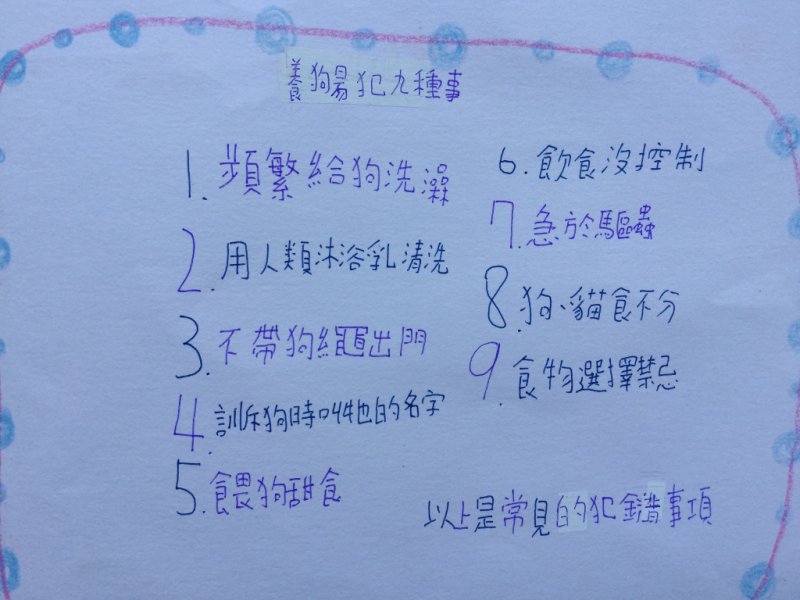 養狗易犯九種事
1.頻繁給狗洗澡
2.用人類沐浴乳清洗
3.不帶狗繩出門
4.訓斥狗時叫牠的名字
5.餵狗甜食
6.飲食沒控制
7.急於驅蟲
8.狗、貓食不分
9.食物選擇禁忌
以上是常見的犯錯事項